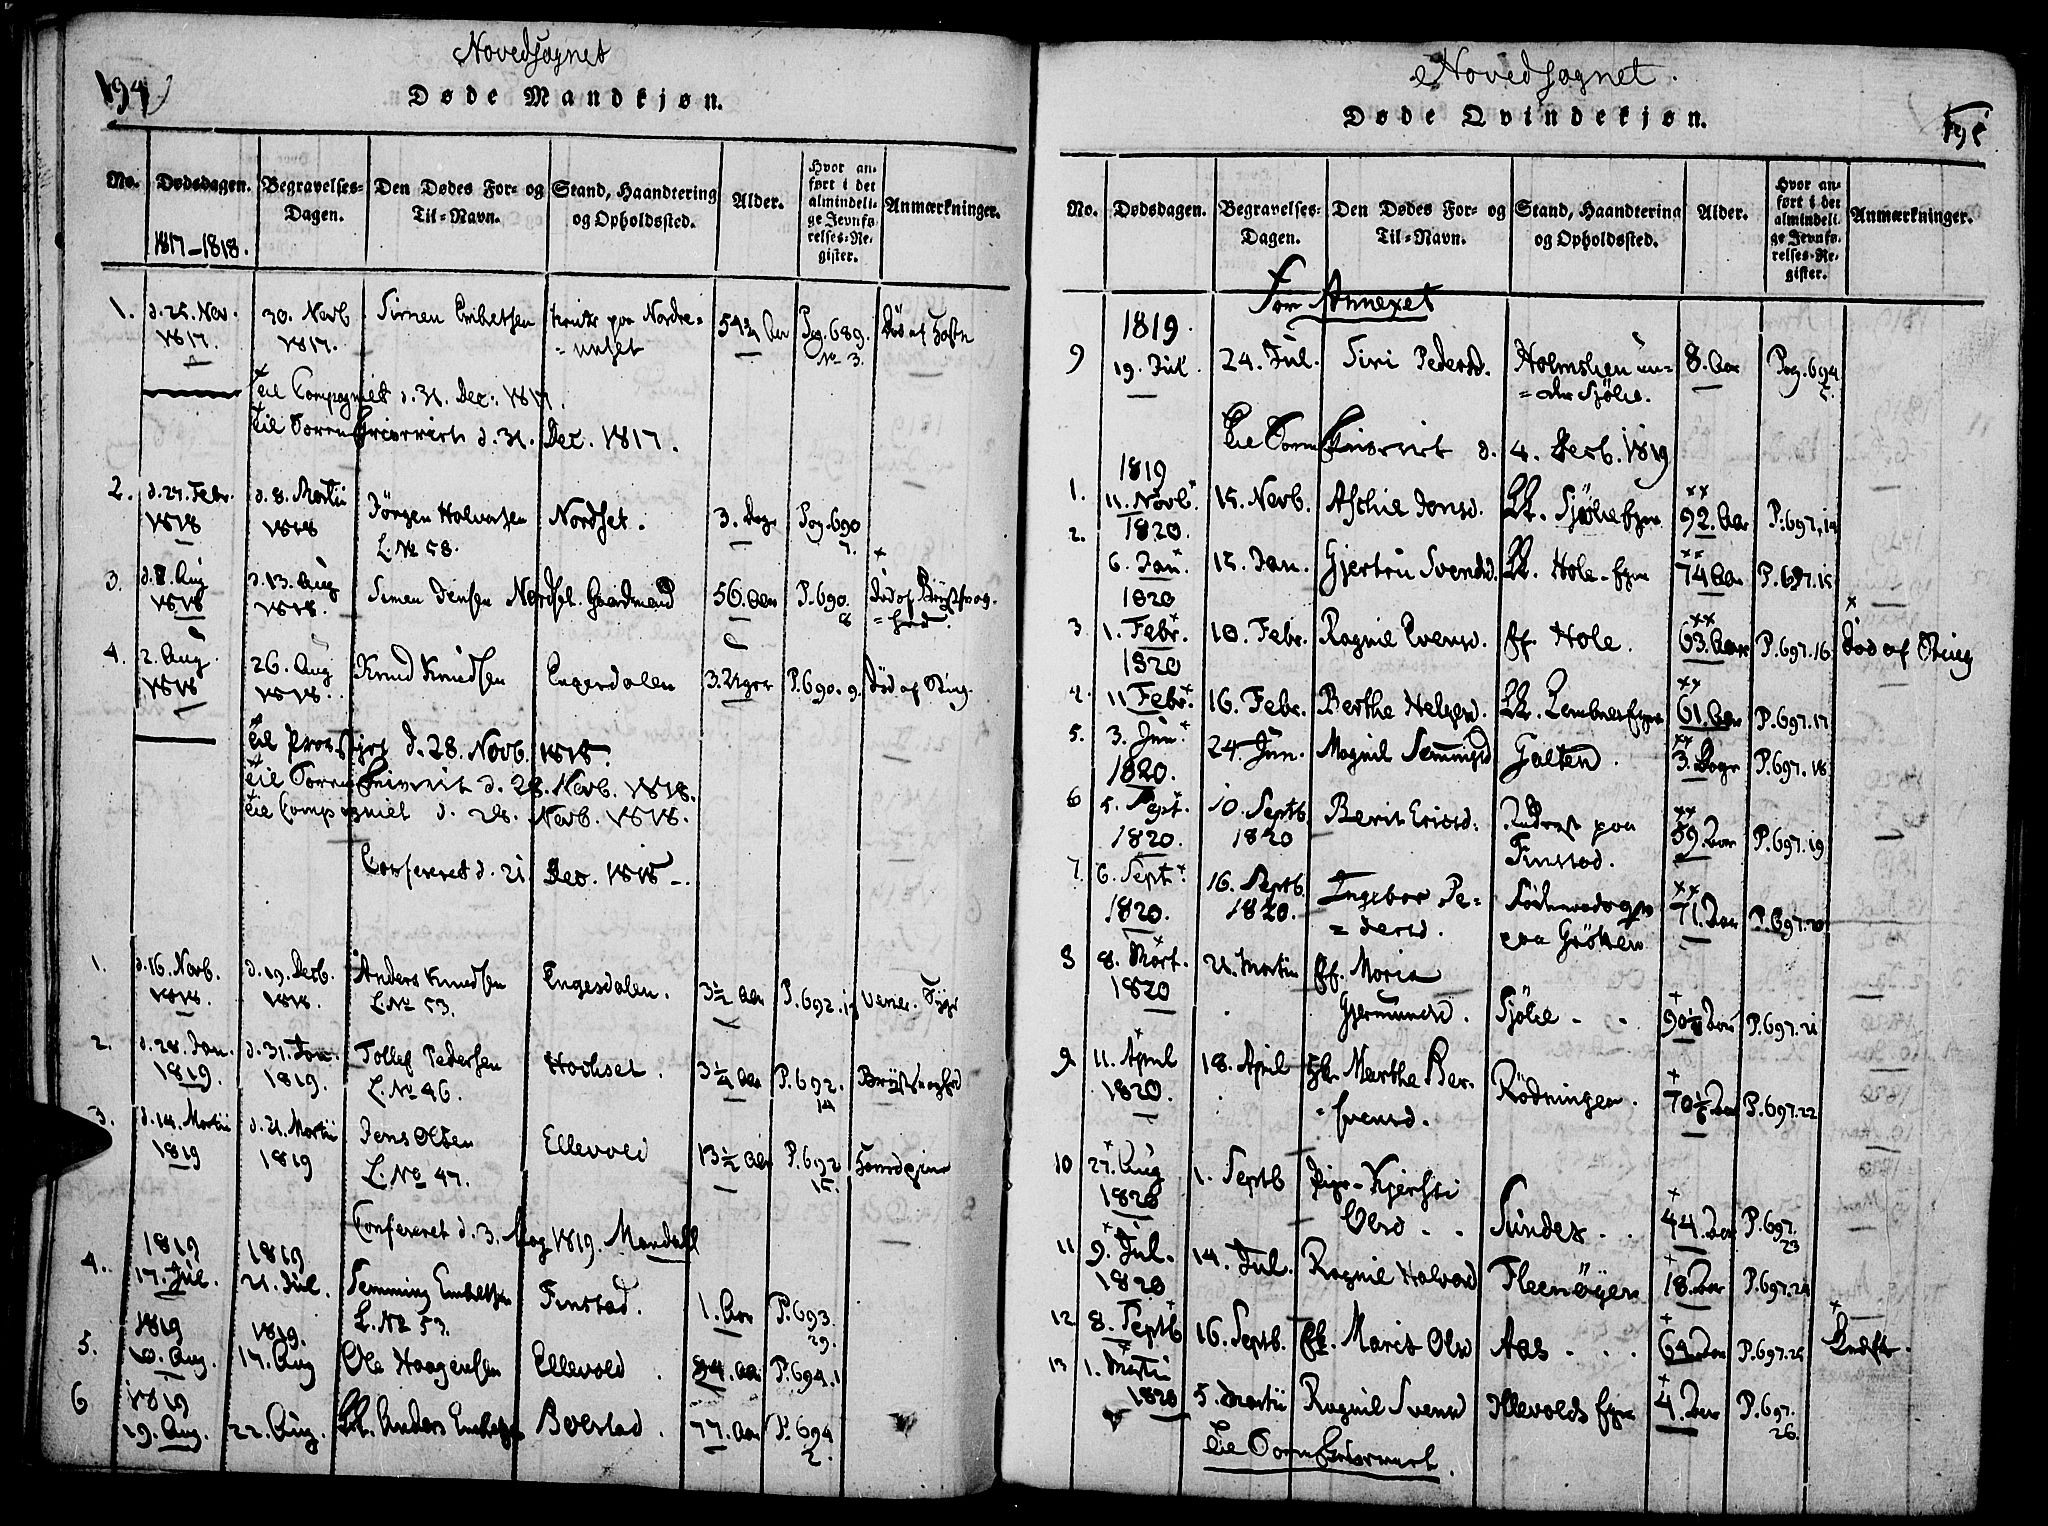 Hovedsognet
194
Døde Mandkjøn.
No. Dødsdagen. Begravelses-Dagen. Den Dødes For- og Til-Navn. Stand, Haandtering og Opholdssted. Alder. Hvor anført i det almindelige Jevnførelses-Register. Anmærkninger.
1817-1818.
1. d. 25. Nov. 1817. 30. Novb 1817. Simen Embretsen paa Nordre- 54¾ Aar Pag. 689. No 3. Død af
til Compagniet d. 31. Dec. 1817.
til d. 31. Dec. 1817.
2. d. 27. Febr. 1818 d. 8. Martii 1818 Jørgen Halvorsen L. No 58. Nordset. 3. Dage Pag. 690 7.
3. d. 8. Aug 1818 d. 13. Aug 1818. Simen Jensen Nordset. Gaardmand 56. Aar P. 690. 8 Død af
4. 2. Aug. 1818 26. Aug 1818. Knud Knudsen Engerdalen 3. Uger P. 690. 9. Død af Sting.
til d. 28. Novb. 1818.
til d. 28. Novb. 1818.
til Compagniet d. 28. Novb. 1818.
Confereret d. 21 Dec. 1818 -
1. d. 16. Novb. 1818. d. 19. Decb. 1818. Anders Knudsen L. No 53. Engerdalen. 3½ Aar P. 692. 13
2. d. 28. Jan. 1819. d. 31. Jan. 1819. Tollef Pedersen L. No 46. 3¼ Aar P. 692. 14
3. d. 14. Martii 1819 d. 21. Martii 1819 Jens Olsen L. No 47. Ellevold 13½ Aar P. 692 15.
Confereret d. 3. May 1819. Mandahl
4. 1819 17. Jul. 1819 21. Jul. Semming Embretsen L. No 53. Finstad. 1. Aar P. 693 29.
5. 1819 10. Aug. 1819. 17. Aug Ole Haagensen Ellevold. 84. Aar P. 694. 1
6 1819 19. Aug. 22. Aug. Anders Embretsen Bolstad. 77. Aar P. 694 2.
Hovedsognet.
195
Døde Qvindekjøn.
No. Dødsdagen. Begravelses-Dagen. Den Dødes For- og Til-Navn. Stand, Haandtering og Opholdssted. Alder. Hvor anført i det almindelige Jevnførelses-Register. Anmærkninger.
For Annexet
9 1819. 19. Jul. 24. Jul. Siri Pedersd. under Sjølie. 8. Aar Pag. 694
d. 4. Decb. 1819
1. 1819 11. Novb. 15. Novb. Jonsd. Sjølie 92. Aar P. 697. 14
2. 1820. 6. Jan. 15. Jan. Gjertru Svendsd. Hole 74 Aar P. 697. 15
3 1820 1. Febr. 10. Febr. Ragnil Evensd. Hole. 63. Aar P. 697. 16 Død af Sting
4. 1820 11 Febr. 16. Febr. Berthe Helgesd. 61. Aar P. 697. 17
5. 3. Jun. 1820. 24. Jun. Magnil Semmingsd Galten. 3. Dage P. 697. 18
6 5. Sept. 1820. 10. Septb 1820 Berit Ericsd. paa Finstad. 89. Aar P. 697. 19
7. 6. Sept. 1820. 16. Septb. 1820. Ingebor Pe-dersd. paa Grötten 71. Aar P. 697. 20
8 8. Mart. 1820 21. Martii Maria Gjermundsd. Sjölie P. 697. 21
9 11. April 1820. 18. April Marthe Ber-svensd. Rödningen. P. 697. 22
10 27. Aug 1820 1. Septb Kjersti Olsd Sundet 44. Aar P. 697. 23
11 9. Jul. 1820 14. Jul. Ragnil Halvorsd Fleenöyen 18. Aar P. 697. 24
12 8. Septb 16. Septb. Marit Olsd Aas 64. Aar P. 697. 25
13 1. Martii 1820 5. Martii Ragnil Svensd Ellevolds 4. Aar P. 697. 26.